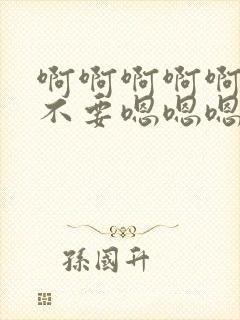 啊啊啊啊啊
不要嗯嗯嗯
孫國升